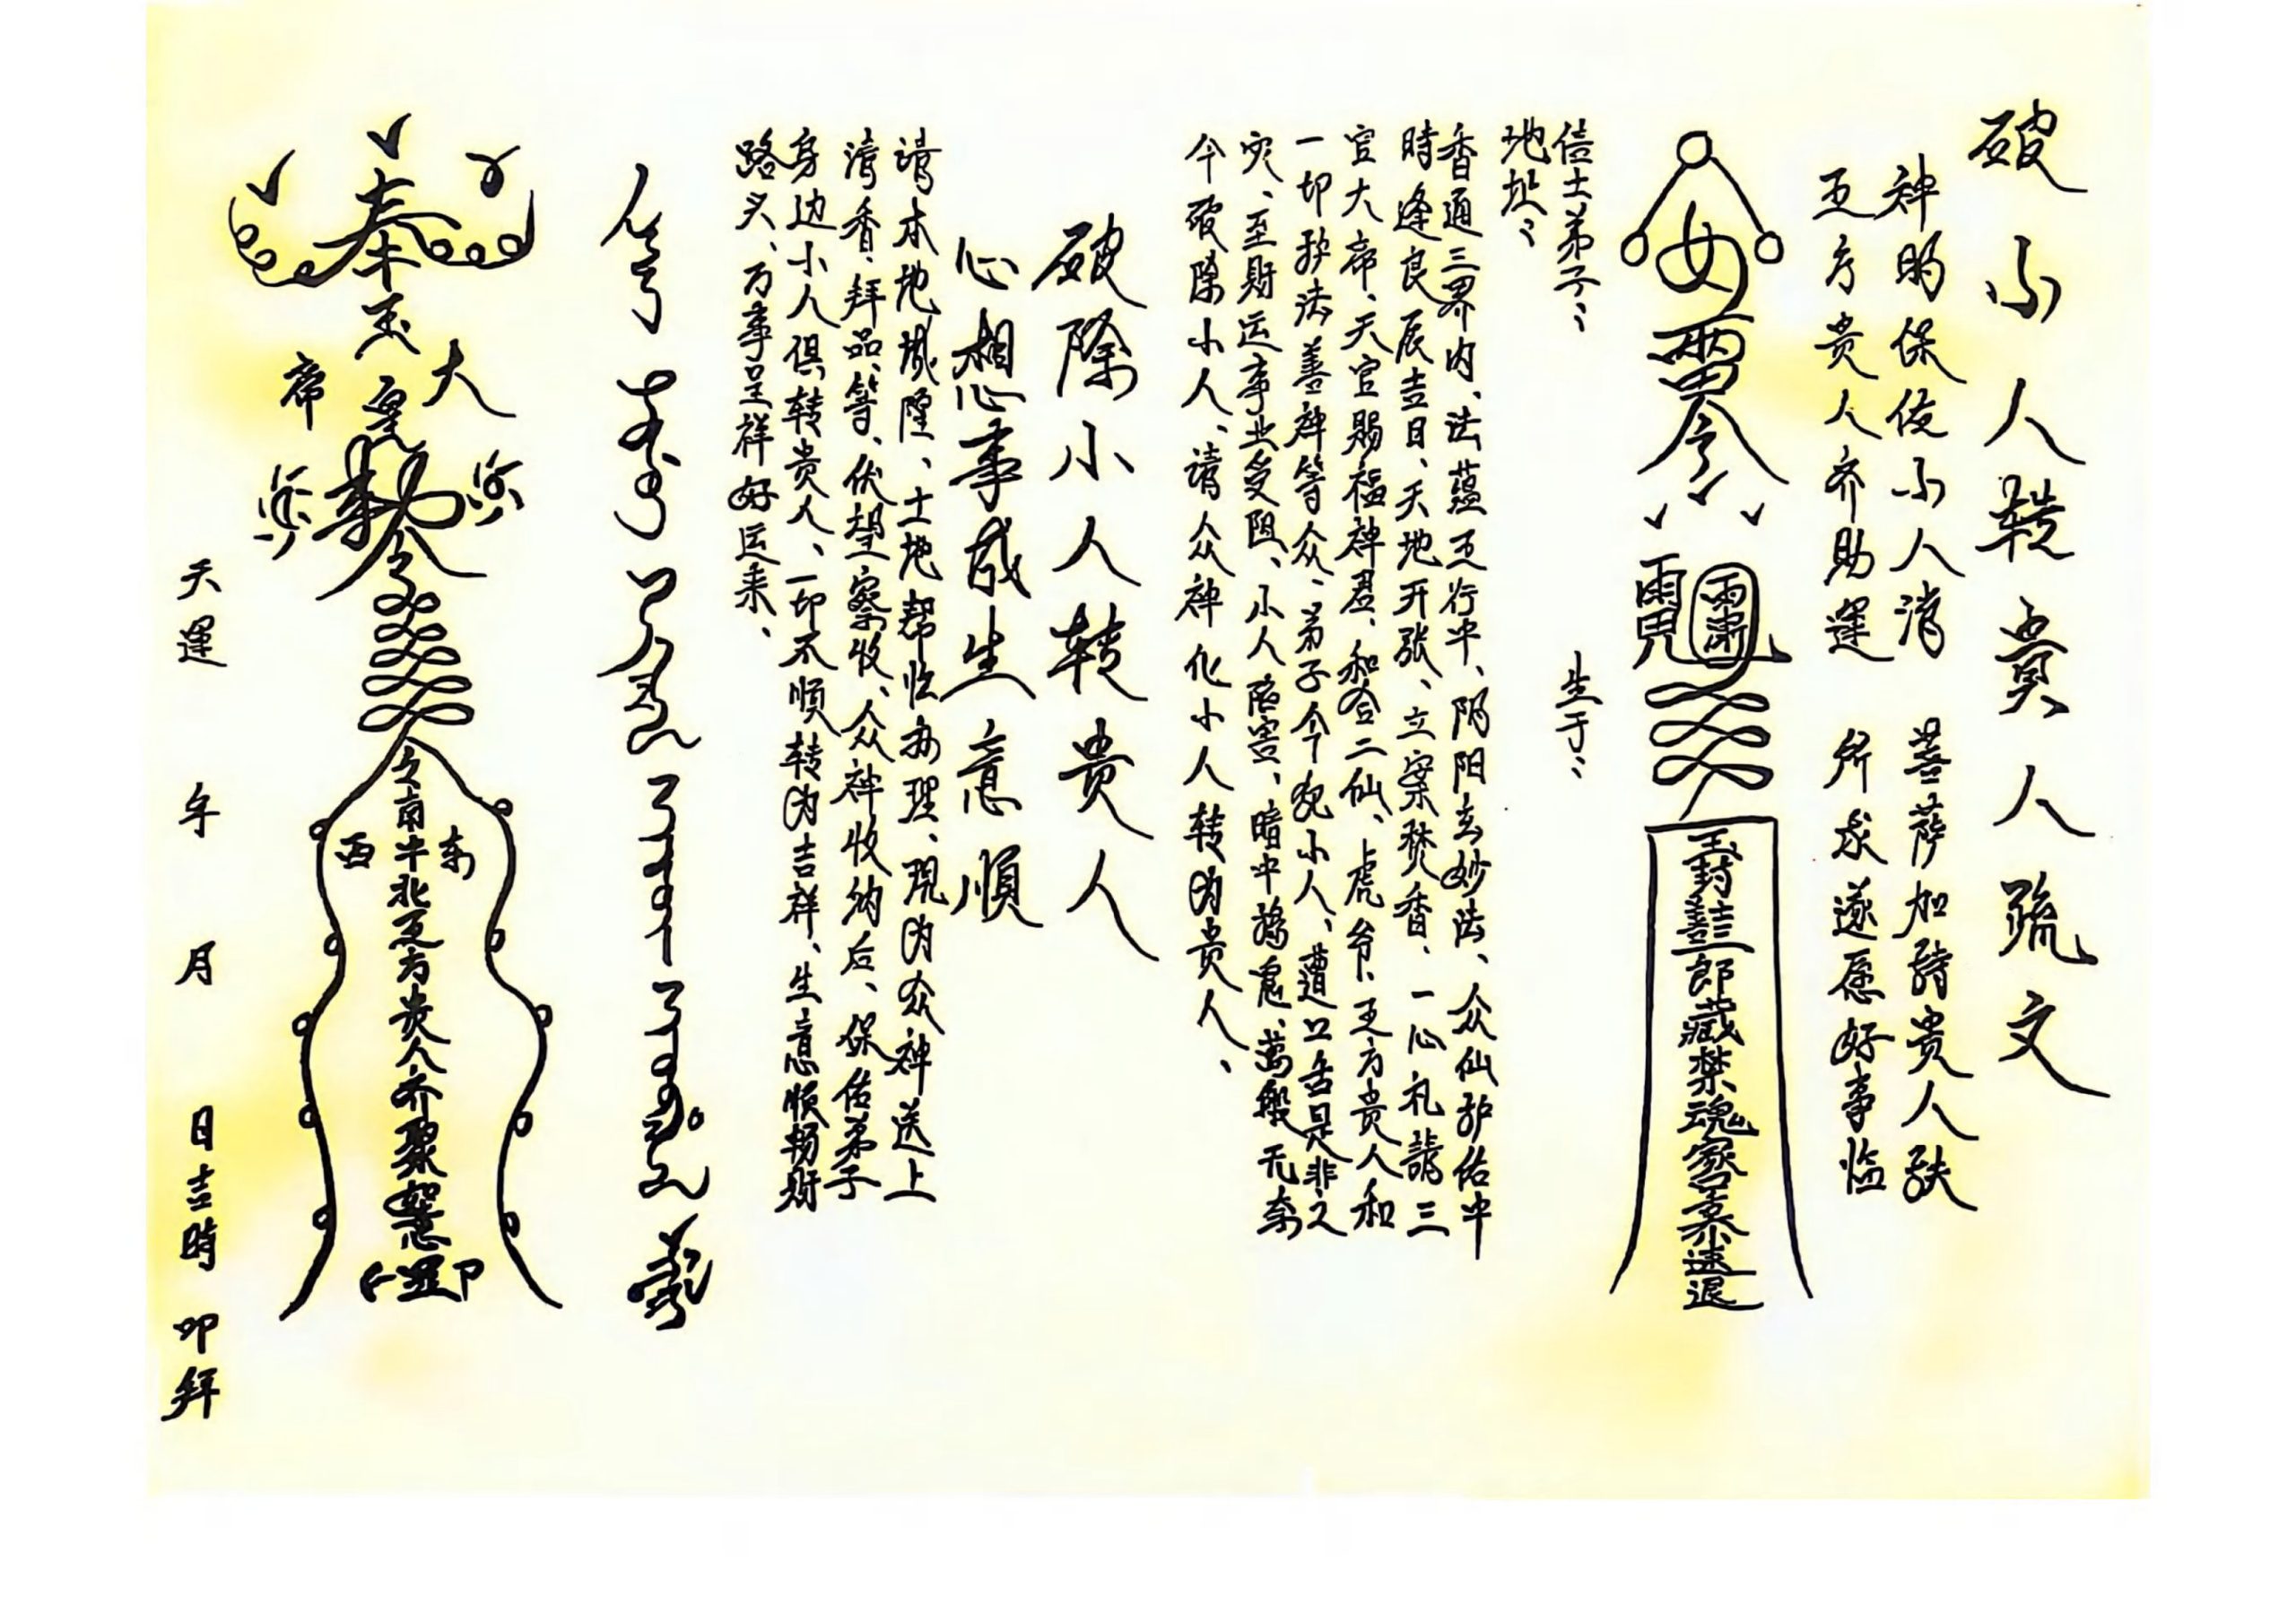 破小人转贵人疏文
神明保佑小人消 菩萨加持贵人扶
五方贵人齐助運 所求遂愿好事临
女
令
玉封
郎藏禁魂
速退
信士弟子：
生于：
地址：
香通三界内、法蕴五行中、阴阳玄妙法、众仙护佑中
時逢良辰吉日、天地开张、立案焚香、一心礼請三
官大帝、天官賜福神君、和合二仙、虎爷、五方贵人和
一切护法善神等众、弟子今犯小人、遭口舌是非之
灾、至财运事业受阻、小人陷害、暗中捣鬼、萬般无奈
今破除小人、请众神化小人转为贵人、
破除小人转贵人
心想事成生意順
请本地城隍、土地帮忙办理、现为众神送上
清香、拜品、等、伏望一察收、众神收纳后、保佑弟子
身边小人俱转贵人、一切不顺转为吉祥、生意顺畅财
路头、万事呈祥好运来、
奉
玉
大
帝
皇
勅
令
令
南
西中东
北五方贵人齐聚
天運 年 月 日吉時 叩拜